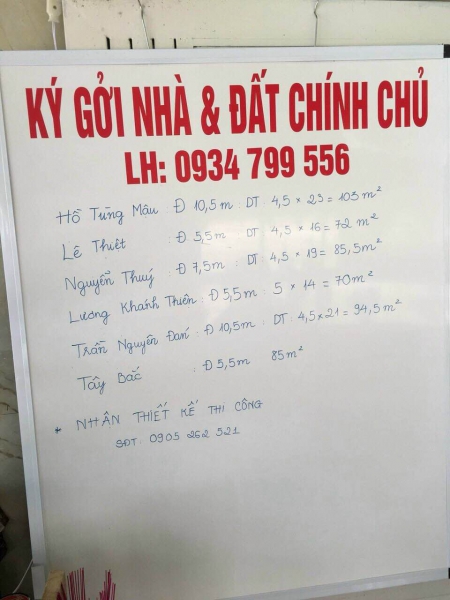 KÝ GỞI NHÀ & ĐẤT CHÍNH CHỦ
LH: 0934 799 556
Hồ Tùng Mậu : Đ 10,5m : DT : 4,5 × 23 = 103 m²
Lê Thiết : Đ 5,5m DT : 4,5 × 16 = 72 m²
Nguyễn Thuý : Đ 7,5m : DT : 4,5 × 19 = 85,5m²
Lương Khánh Thiện : Đ 5,5m : 5 × 14 = 70m²
Trần Nguyên Đán : Đ 10,5m : DT : 4,5×21 = 94,5m²
Tây Bắc : Đ 5,5m 85m²
* NHẬN THIẾT KẾ THI CÔNG
SĐT : 0905 262 521